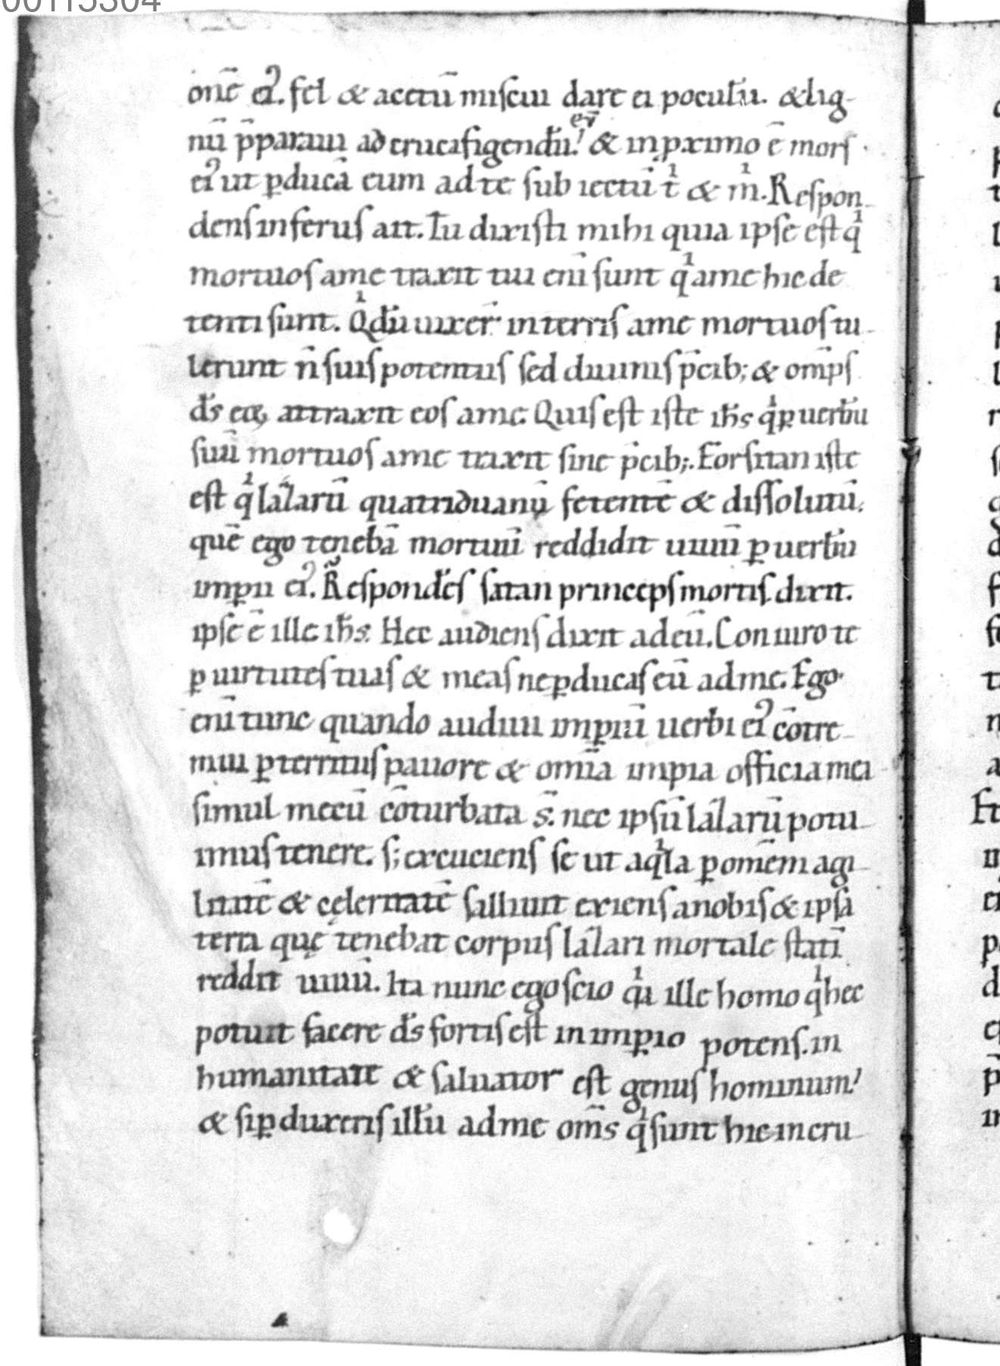 onē ei᾿. fel & acetū miscui dare ei poculū. & lig-
nū p̄paraui ad crucifigendū eū. & in proximo ē mors
ei᾿ ut ꝑducā eum ad te subiectū tⁱ & mⁱ. Respon-
dens inferus ait. Tu dixisti mihi quia ipse est qⁱ
mortuos a me traxit tui eni sunt qⁱ a me hic de
tenti sunt. Qⁱ dū uixer̄ in terris a me mortuos tu-
lerunt n̄ suis potentiis sed diuinis p̄cib; & omp̄s
d̄s eoꝝ attraxit eos a me. Quis est iste ih̄s qⁱ ꝑ uerbū
suū mortuos a me traxit sine p̄cib;. Forsitan iste
est qⁱ lazarū quatriduanū fetentē & dissolutū.
quē ego tenebā mortuū reddidit uiuū ꝑ uerbū
imꝑii ei᾿. Respondēs satan princeps mortis dixit.
ipse ē ille ih̄s. Hec audiens dixit ad eū. Coniuro te
ꝑ uirtutes tuas & meas ne ꝑducas eū ad me. Ego
eni tunc quando audiui imꝑiū uerbi ei᾿ cōtre-
mui ꝑterritus pauore & omīa impia officia mei
simul mecū cōturbata s̄. nec ipsū lazarū potu-
imus tenere. s; excuciens se ut aqⁱla ꝑ omem agi-
litatē & celeritatē salliuit exiens a nobis & ipsa
terra quę tenebat corpus lazari mortale statī
reddit uiuū. Ita nunc ego scio qⁱa ille homo qⁱ hec
potuit facere d̄s fortis est in imꝑio potens. in
humanitate & saluator est genus hominum.
& si ꝑduxeris illū ad me oms qⁱ sunt hic in cru-